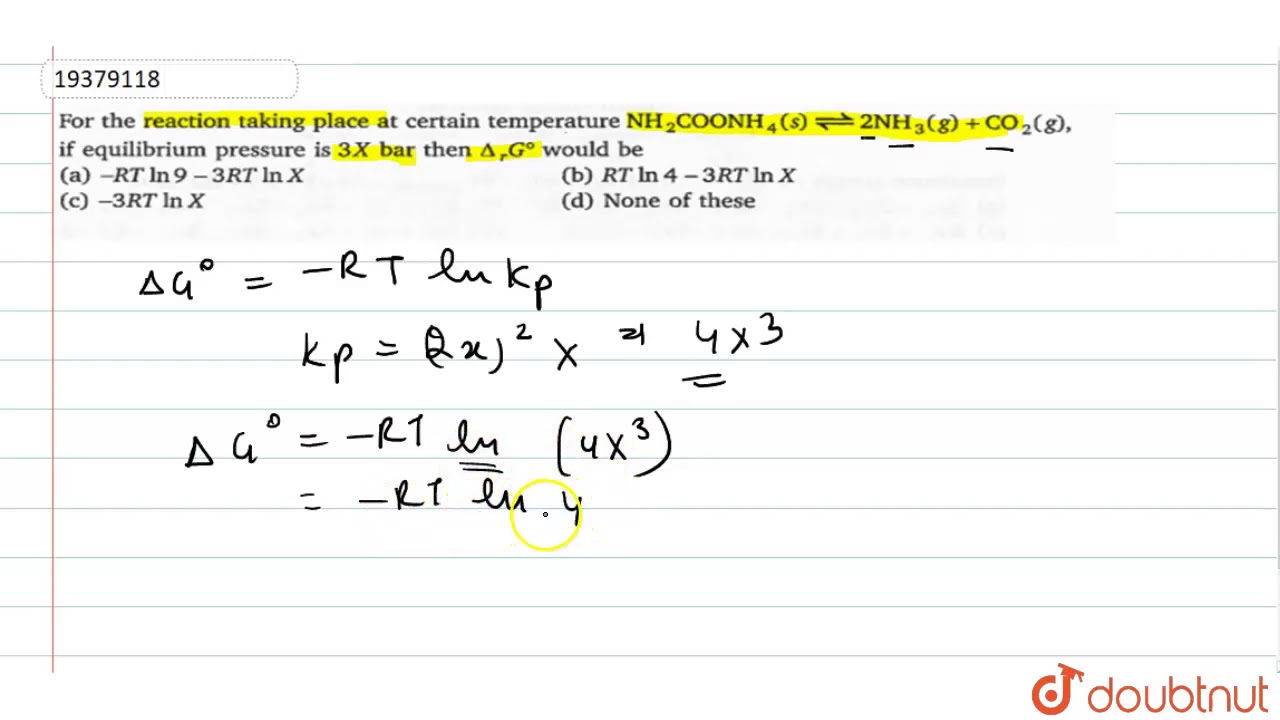 19379118
For the reaction taking place at certain temperature NH₂COONH₄(s) ⇌ 2NH₃(g) + CO₂(g),
if equilibrium pressure is 3X bar then ΔᵣG° would be
(a) –RT ln 9 – 3RT ln X (b) RT ln 4 – 3RT ln X
(c) –3RT ln X (d) None of these
ΔG° = –RT ln Kp
Kp = (2x)² x = 4x³
ΔG° = –RT ln (4x³)
= –RT ln 4
doubtnut